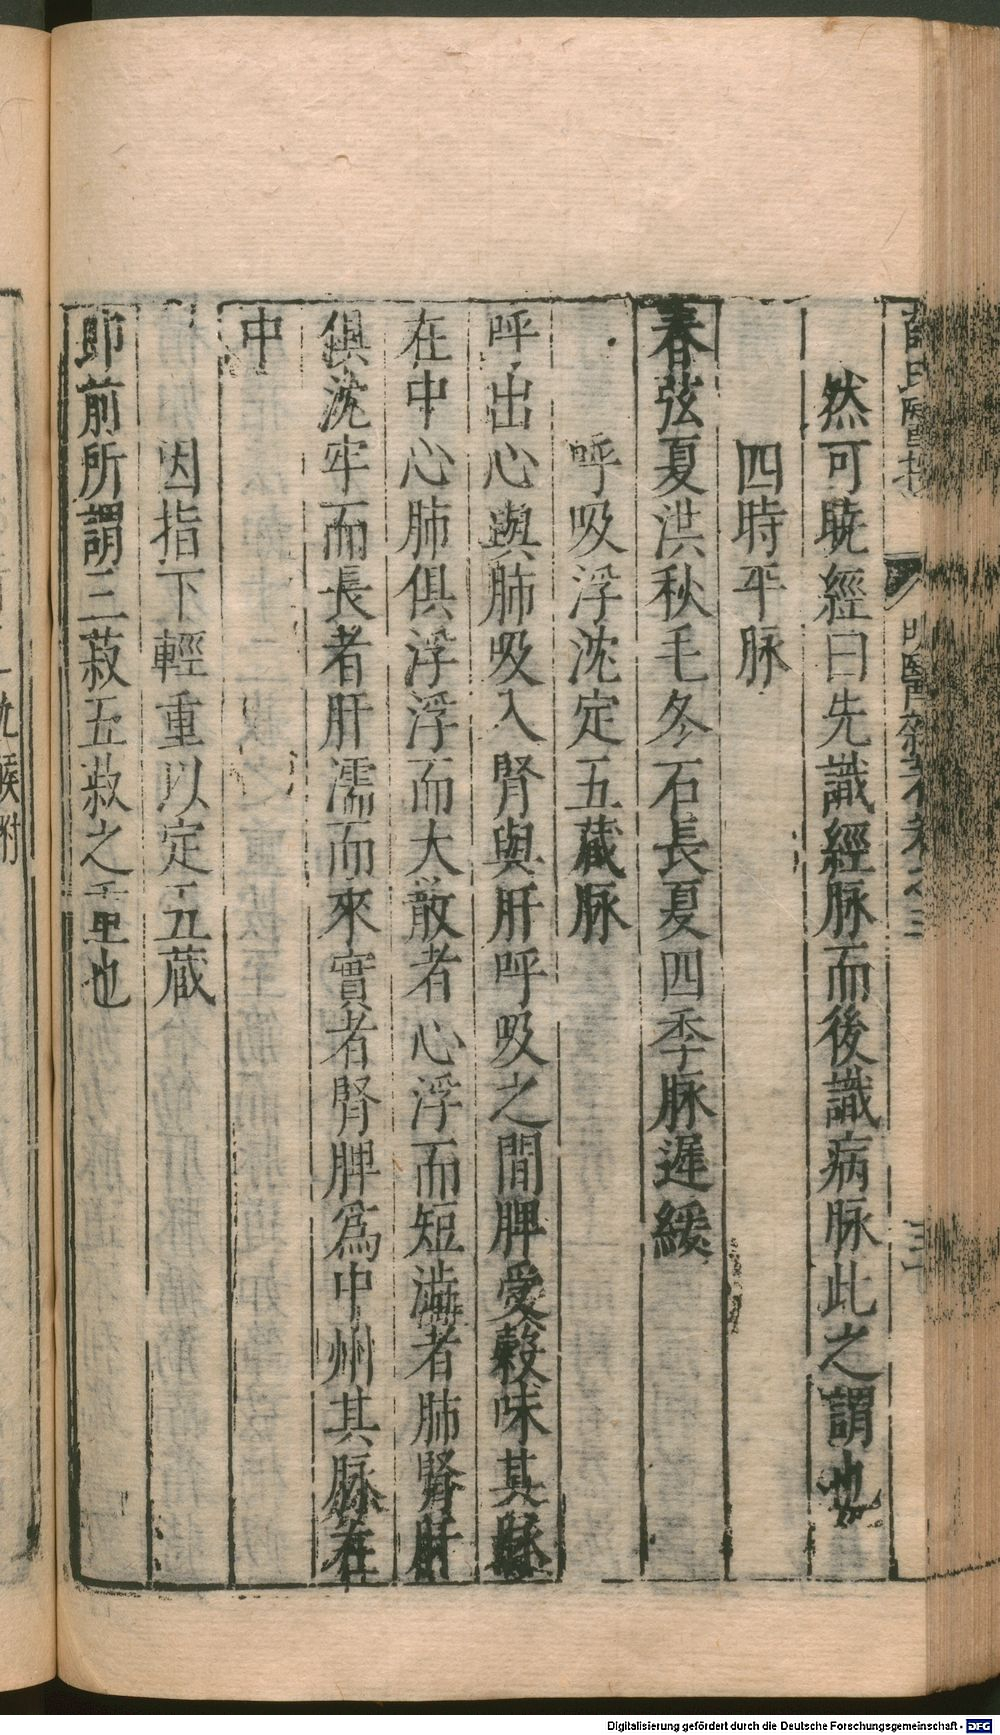 然可曉經曰先識經脉而後識病脉此之謂也
四時平脉
春弦夏洪秋毛冬石長夏四季脉遲緩
呼吸浮沈定五藏脉
呼出心與肺吸入腎與肝呼吸之間脾受穀味其脉
在中心肺俱浮浮而大散者心浮而短濇者肺腎肝
俱沈牢而長者肝濡而來實者腎脾爲中州其脉在
中
因指下輕重以定五藏
即前所謂三菽五菽之重也
九候附
Digitalisierung gefördert durch die Deutsche Forschungsgemeinschaft - DFG